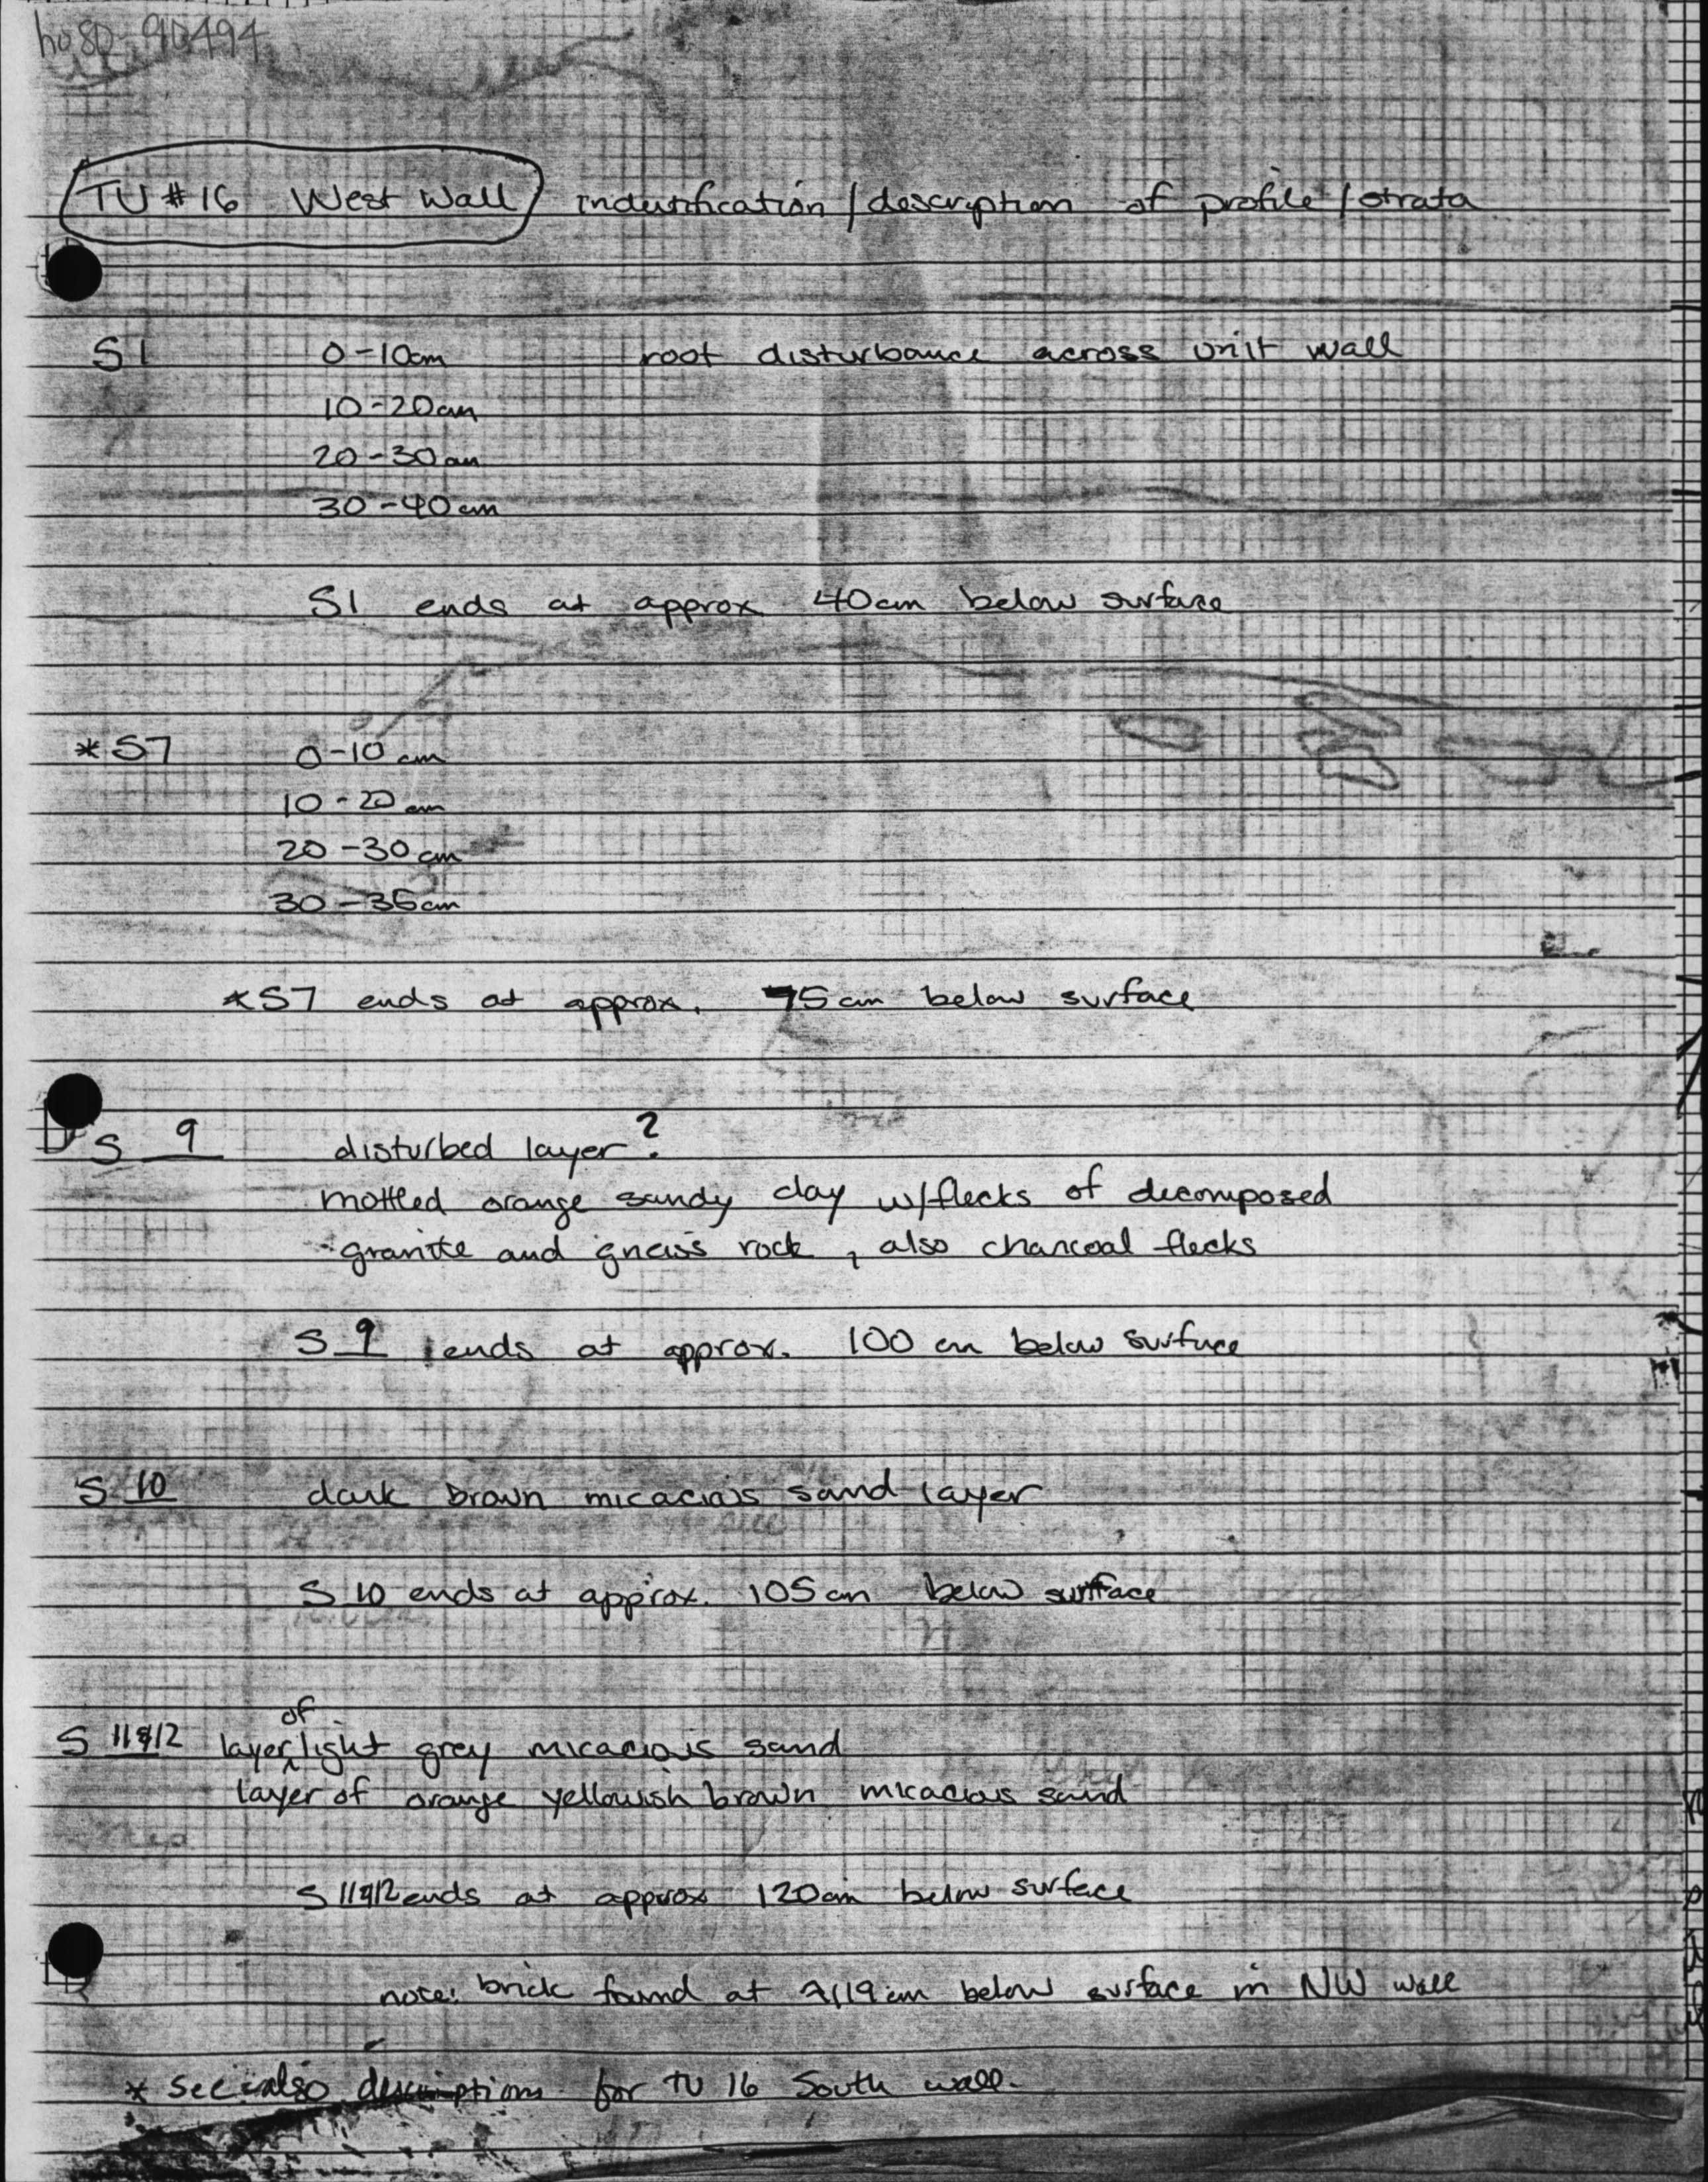 TU #16 West Wall indentification / description of profile / strata
S1 0-10cm root disturbance across unit wall
10-20cm
20-30cm
30-40cm
S1 ends at approx 40cm below surface
* S7 0-10 cm
10-20 cm
20-30 cm
30-35cm
* S7 ends at approx. 75cm below surface
S 9 disturbed layer?
mottled orange sandy clay w/flecks of decomposed
granite and gneiss rock, also charcoal flecks
S 9 ends at approx. 100 cm below surface
S 10 dark brown micacious sand layer
S 10 ends at approx. 105cm below surface
S 11&12 layer of light grey micacious sand
layer of orange yellowish brown micacious sand
S 11&12 ends at approx 120cm below surface
note: brick found at 119cm below surface in NW wall
* see also descriptions for TU 16 South wall.